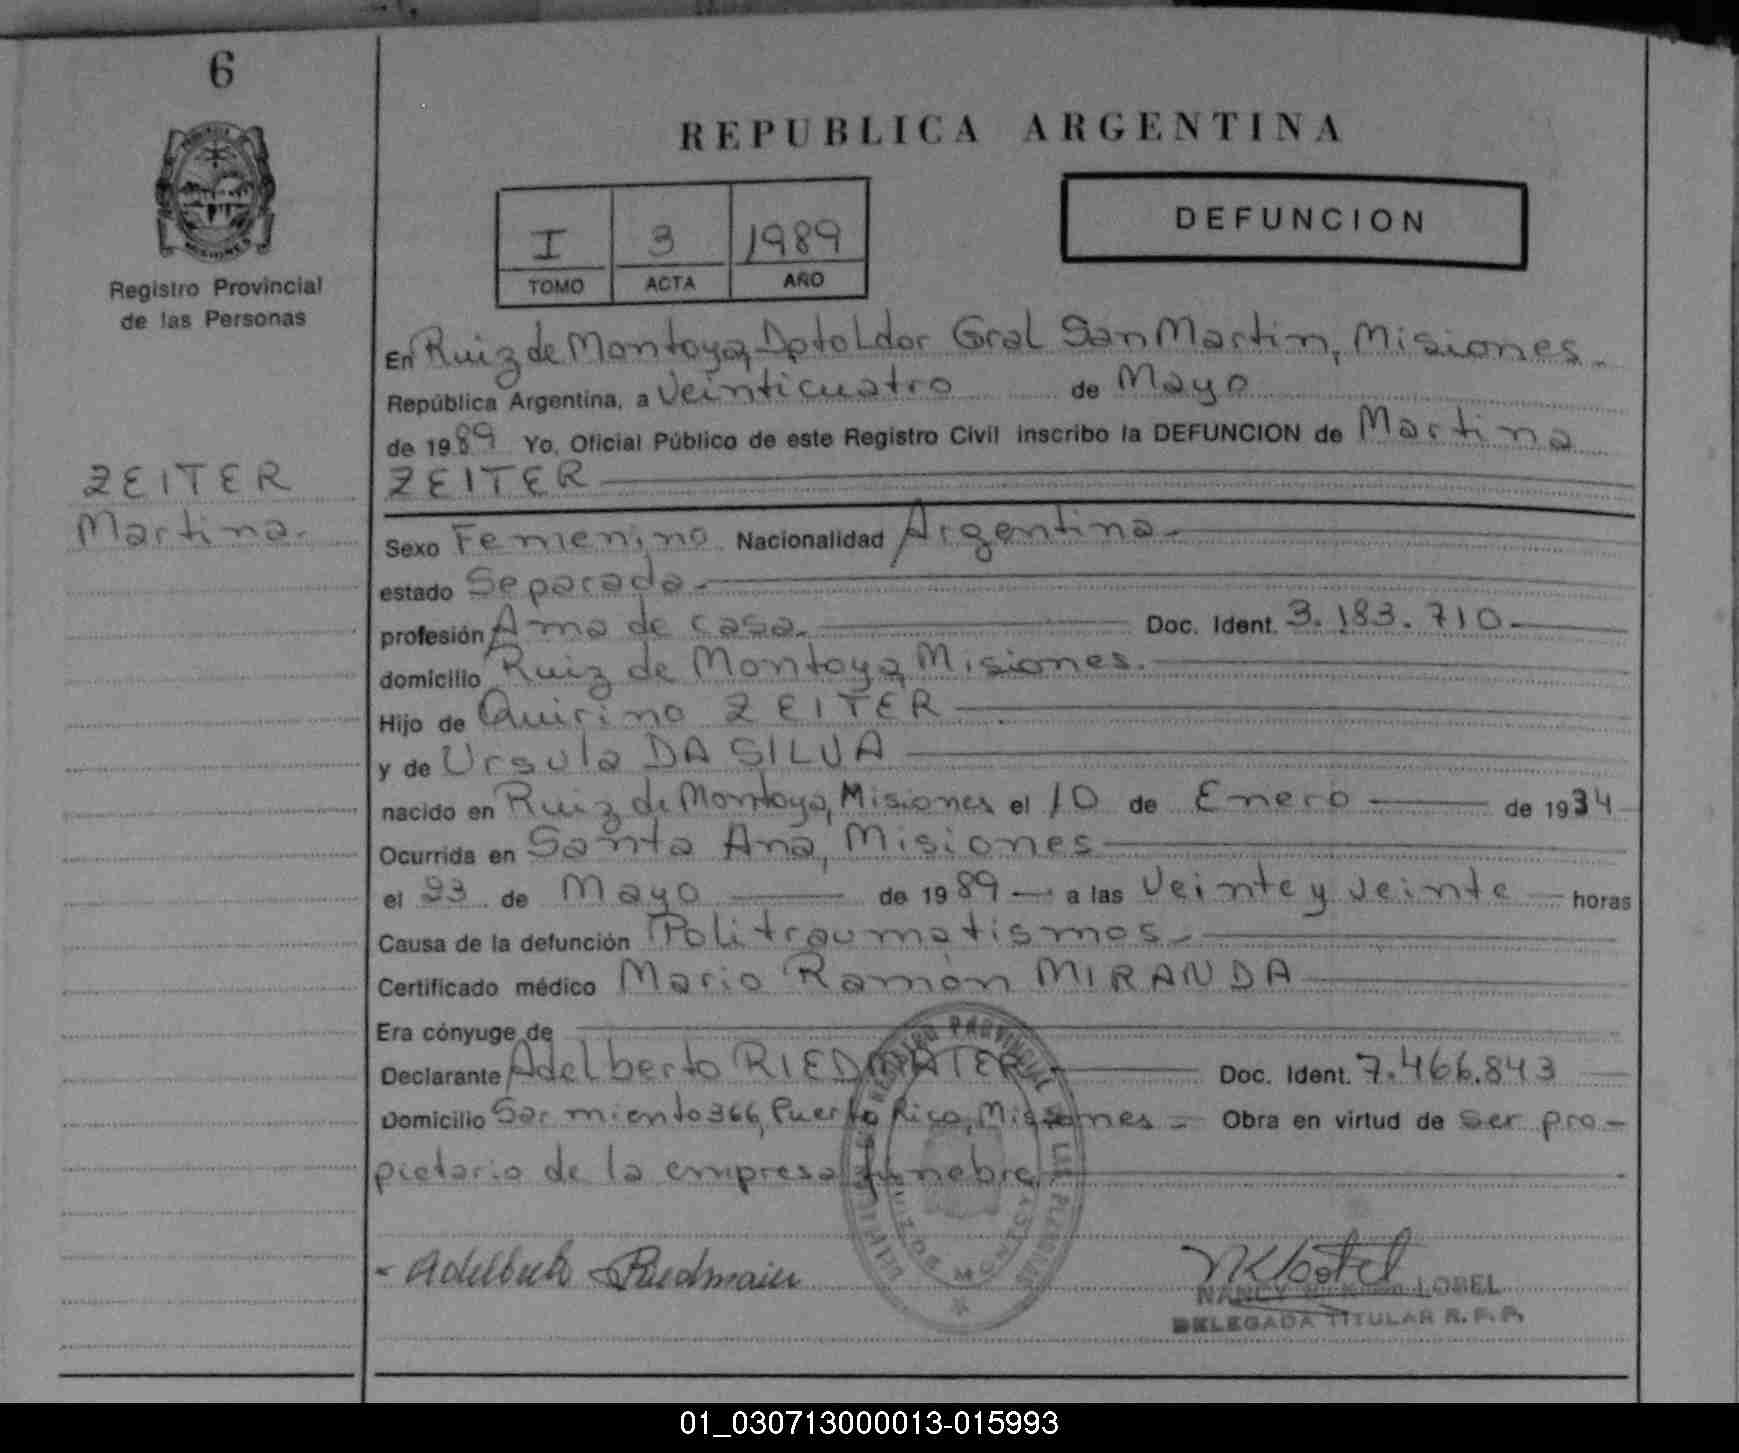 6
REPUBLICA ARGENTINA
I 3 1989
TOMO ACTA AÑO
DEFUNCION
Registro Provincial
de las Personas
En Ruiz de Montoya, Dpto Ldor Gral San Martin, Misiones.
República Argentina, a Veinticuatro de Mayo
de 1989 Yo, Oficial Público de este Registro Civil inscribo la DEFUNCION de Martina
ZEITER
ZEITER
Martina.
Sexo Femenino Nacionalidad Argentina
estado Separada
profesión Ama de casa. Doc. Ident. 3.183.710
domicilio Ruiz de Montoya, Misiones.
Hijo de Quirino ZEITER
y de Ursula DA SILVA
nacido en Ruiz de Montoya, Misiones el 10 de Enero de 1934
Ocurrida en Santa Ana, Misiones
el 23 de Mayo de 1989 a las Veinte y veinte horas
Causa de la defunción Politraumatismos
Certificado médico Mario Ramón MIRANDA
Era cónyuge de
Declarante Adelberto RIEDMAIER Doc. Ident. 7.466.843
Domicilio Sarmiento 366, Puerto Rico, Misiones Obra en virtud de ser pro-
pietario de la empresa fúnebre
REGISTRO PROVINCIAL DE LAS PERSONAS
RUIZ DE MONTOYA
MISIONES
Adelberto Riedmaier
NANCY LOBEL
DELEGADA TITULAR R.P.P.
01_030713000013-015993